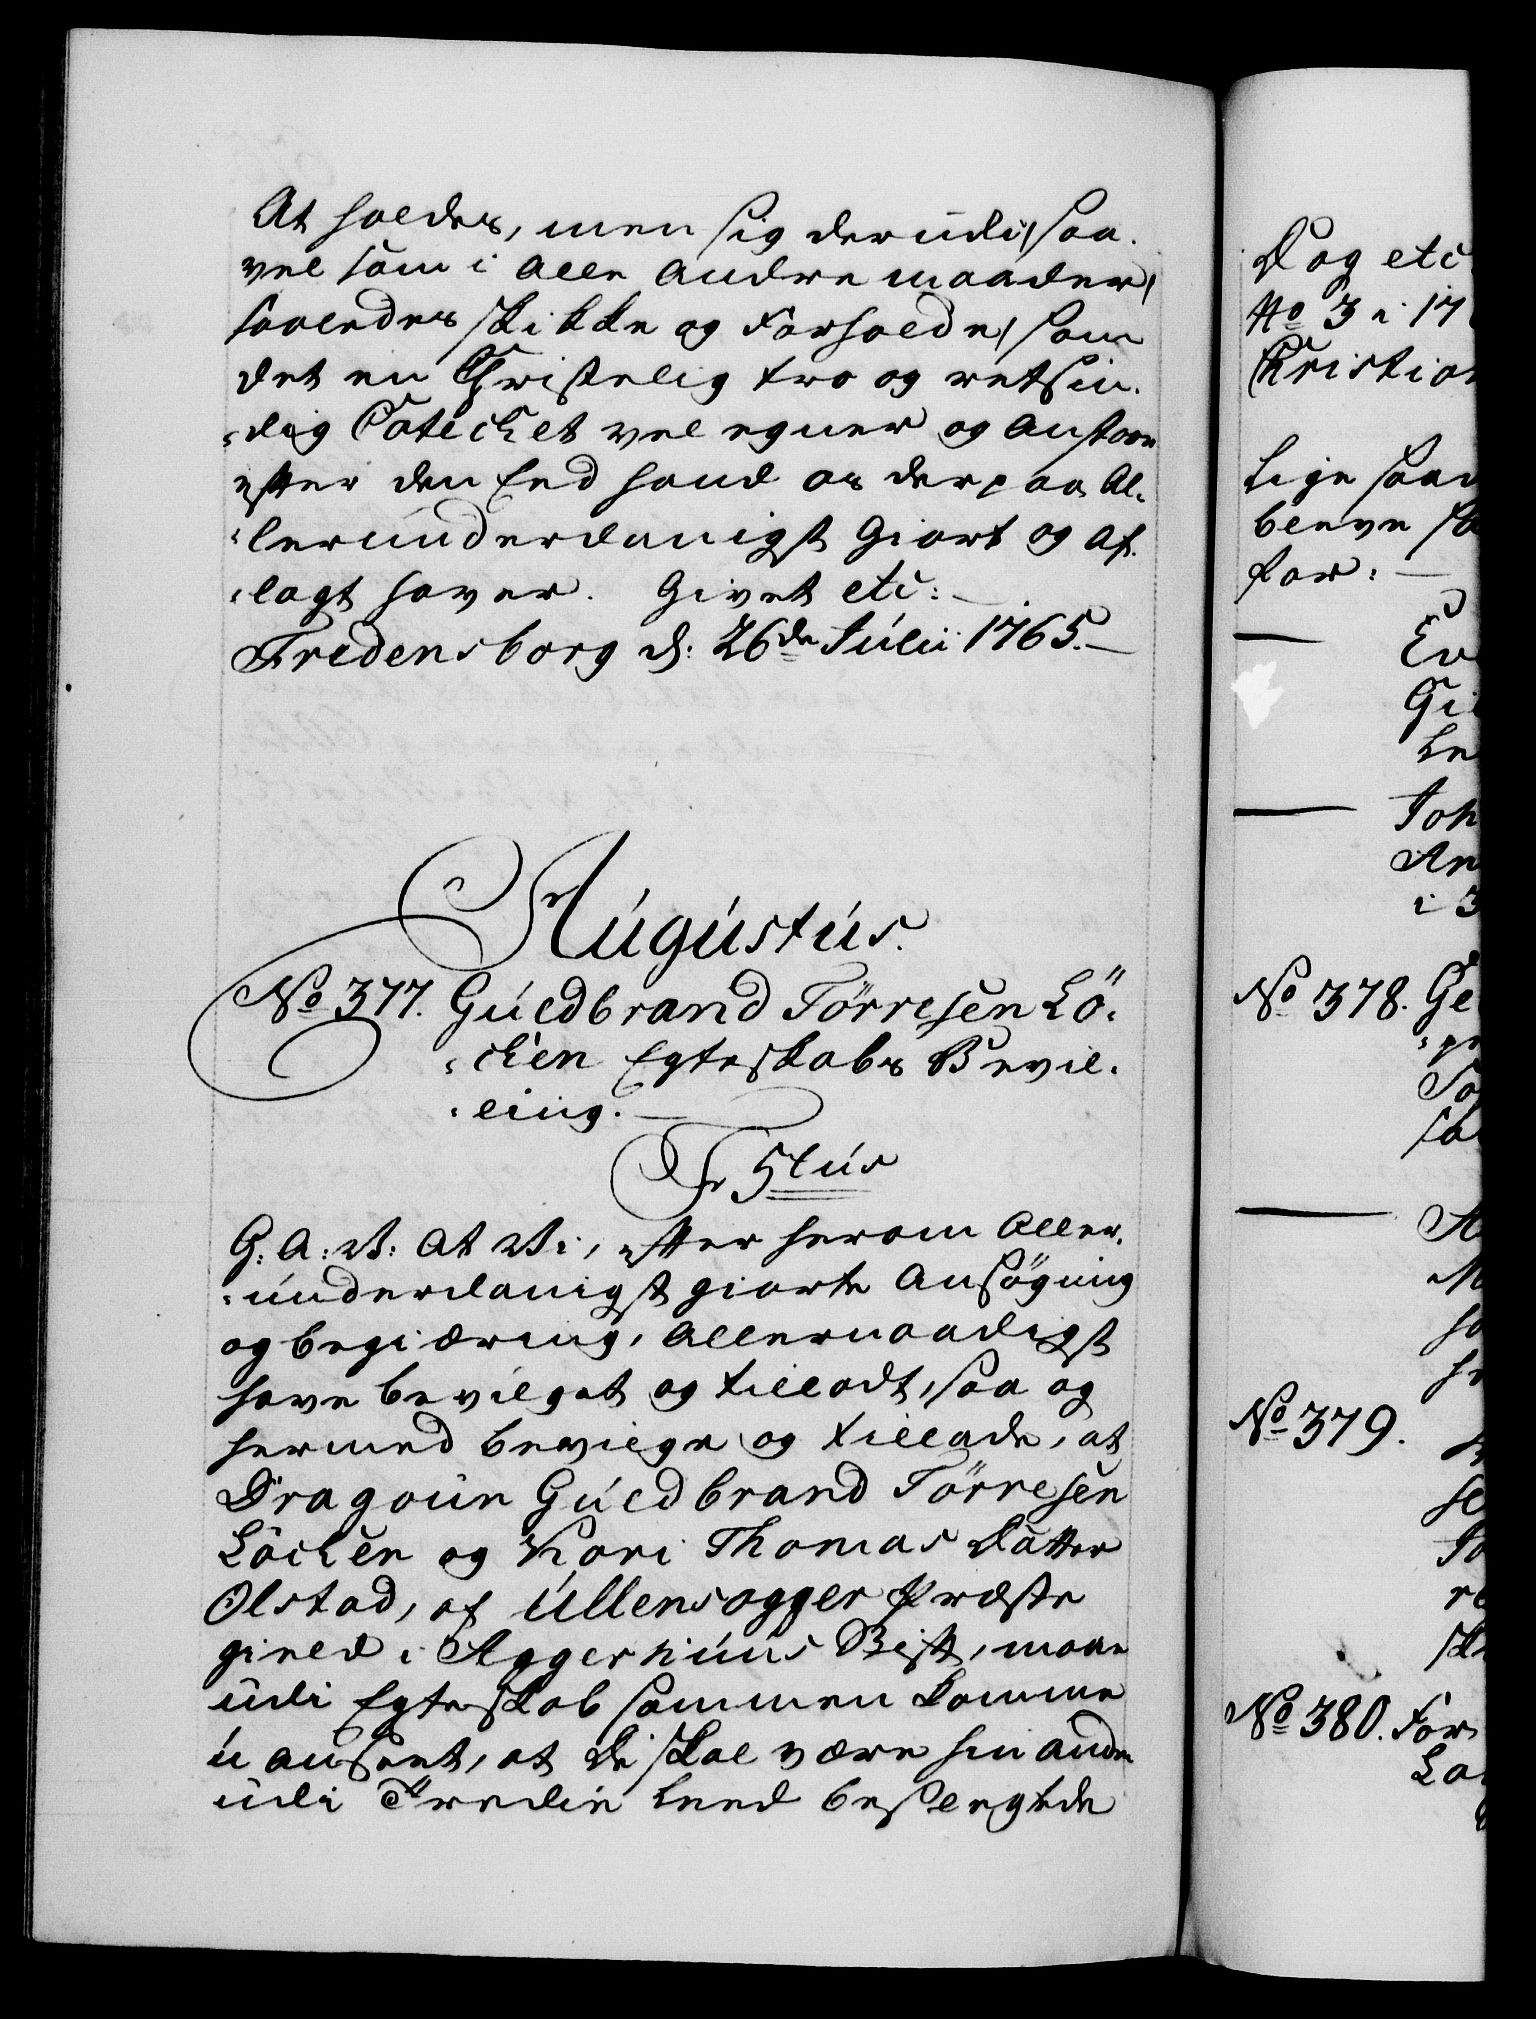 At holdes, men sig derudi, saa-
vel som i alle andre maader,
saaledes skikke og forholde, som
det en Christelig troe og retsin-
-dig Catechet vel egner og anstaar
efter den Eed hand os derpaa Al-
-lerunderdanigst giort og af-
-lagt haver. Givet etc:
Fredensborg d: 26de Julii 1765.
Augustus.
No 377. Guldbrand Törresen Lö-
-chen Egteskabs Bevil-
-ling.
Fr 5tus
G: A: V: at Vi, efter herom aller-
-underdanigst giorte Ansögning
og begiæring, allernaadigst
have bevilget og tilladt, saa og
hermed bevilge og tillade, at
Dragoun Guldbrand Törresen
Löchen og Kari Thomas Datter
Olstad, af Ullensagger Præste
gield i Aggershuus Stift, maae
udi Egteskab sammen komme
u anseet, at De skal være hin anden
udi Tredie Leed beslegtede
Dog etc
No 3 i 17
Christian
Lige saad
bleve
for:
Gi
Joh
An
i 3
No 378. Ge
No 379.
No 380. For